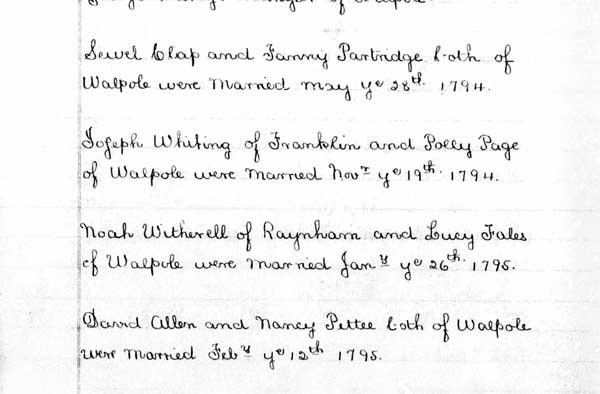 of Walpole
Sewel Clap and Fanny Partridge both of
Walpole were Married may ye 28th. 1794.
Joseph Whiting of Franklin and Polly Page
of Walpole were Married Novr ye 19th. 1794.
Noah Witherell of Raynham and Lucy Fales
of Walpole were Married Jany ye 26th. 1795.
David Allen and Nancy Pettee both of Walpole
were Married Feby ye 12th 1795.